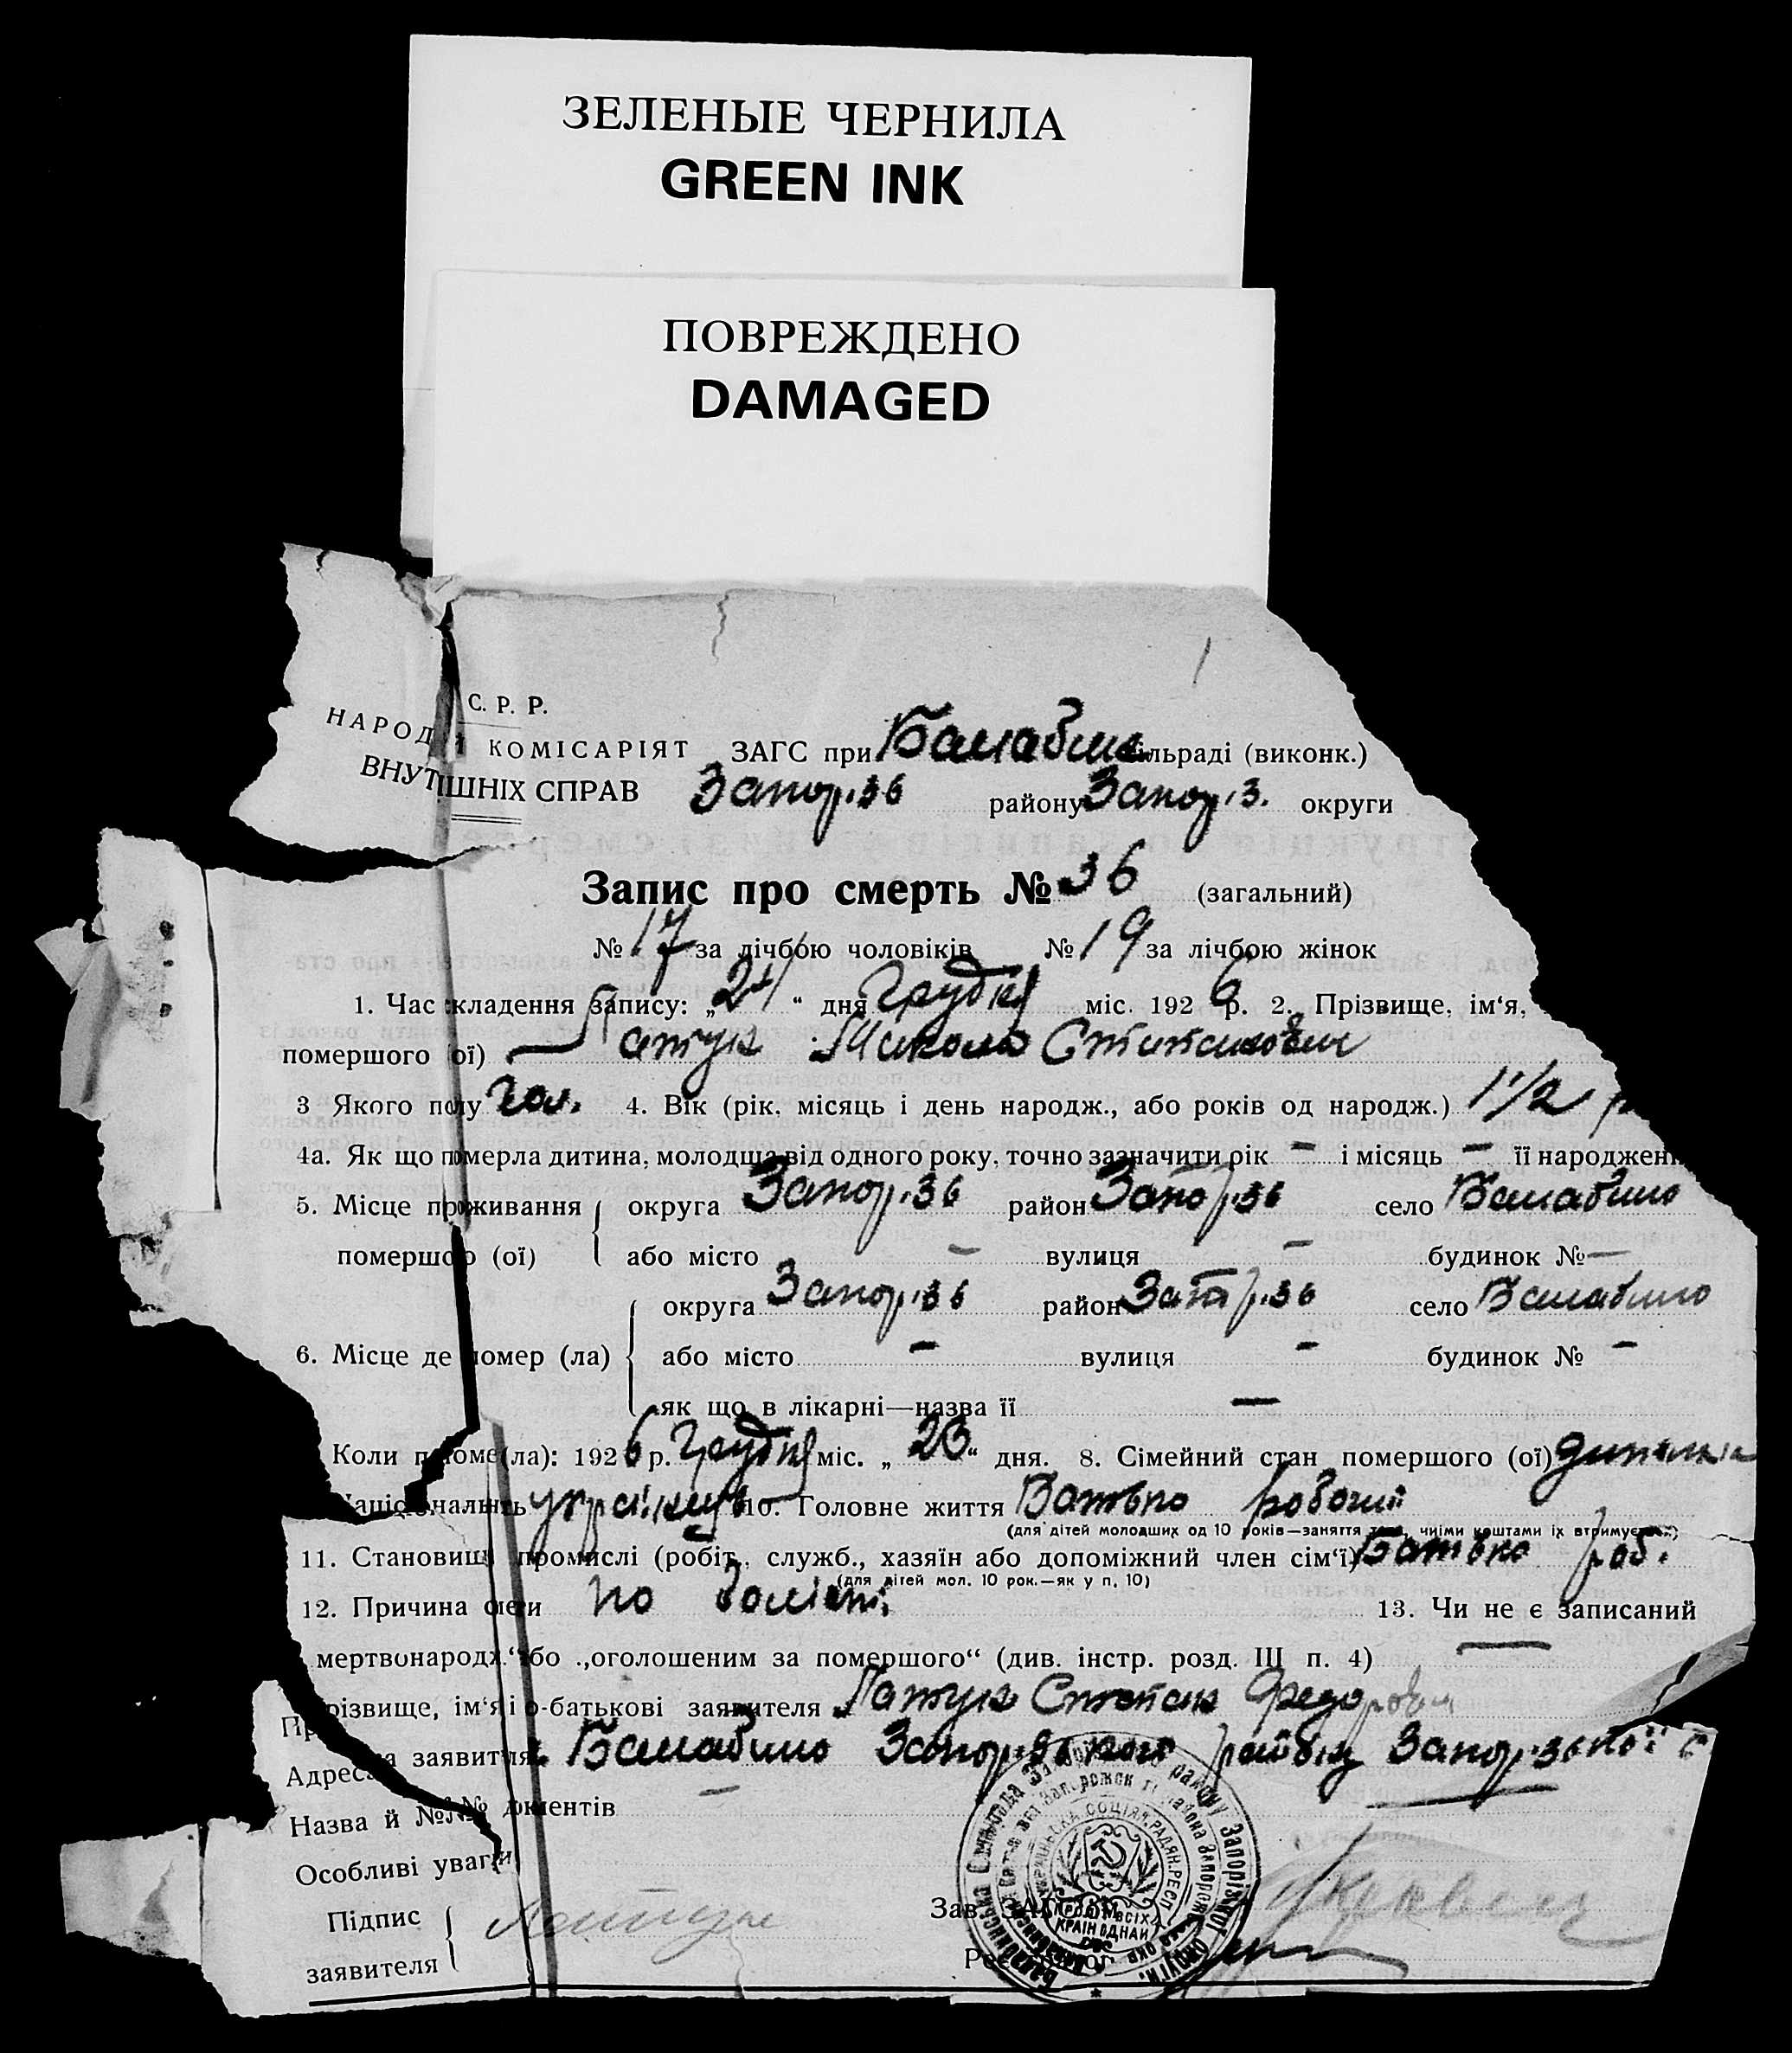 ЗЕЛЕНЫЕ ЧЕРНИЛА
GREEN INK
ПОВРЕЖДЕНО
DAMAGED
С. Р. Р.
НАРОД Й КОМІСАРІЯТ ЗАГС при Балабин сільраді (виконк.)
ВНУТ ІШНІХ СПРАВ Запор.зб району Запоріз. округи
Запис про смерть № 36 (загальний)
№ 17 за лічбою чоловіків № 19 за лічбою жінок
1. Час складення запису: „24“ дня Грудня міс. 1926 р. 2. Прізвище, ім‘я,
помершого (ої) Латун Микола Степанович
3 Якого полу чол. 4. Вік (рік, місяць і день народж., або років од народж.) 1 1/2 р
4а. Як що померла дитина, молодша від одного року, точно зазначити рік – і місяць – її народжен
5. Місце проживання округа Запор.зб район Запор.зб село Балабино
помершого (ої) або місто – вулиця – будинок № –
округа Запор.зб район Запор.зб село Балабино
6. Місце де помер (ла) або місто – вулиця – будинок № –
як що в лікарні—назва її —
Коли поме (ла): 1926 р. Грудня міс. „23“ дня. 8. Сімейний стан помершого (ої) дитина
Національність українець 10. Головне життя Батько робочий
(для дітей молодших од 10 років—заняття того, чиїми коштами їх втримується)
11. Становищ промислі (робіт., служб., хазяїн або допоміжний член сім‘ї) Батько роб.
(для дітей мол. 10 рок.—як у п. 10)
12. Причина смерти по 13. Чи не є записаний
„мертвонародж.“ або „оголошеним за помершого“ (див. інстр. розд. III п. 4) —
Прізвище, ім‘я і по-батькові заявителя Латун Степан Федорович
Адреса заявителя: Балабино Запорізького району Запорізької
Назва й №№ документів –
Особливі уваги
Підпис
заявителя Латун
Зав. ЗАГСОМ Кравец
УКРАЇНСЬКА СОЦІЯЛ. РАДЯН. РЕСП.
ПРОЛ. ВСІХ КРАЇН ЄДНАЙ